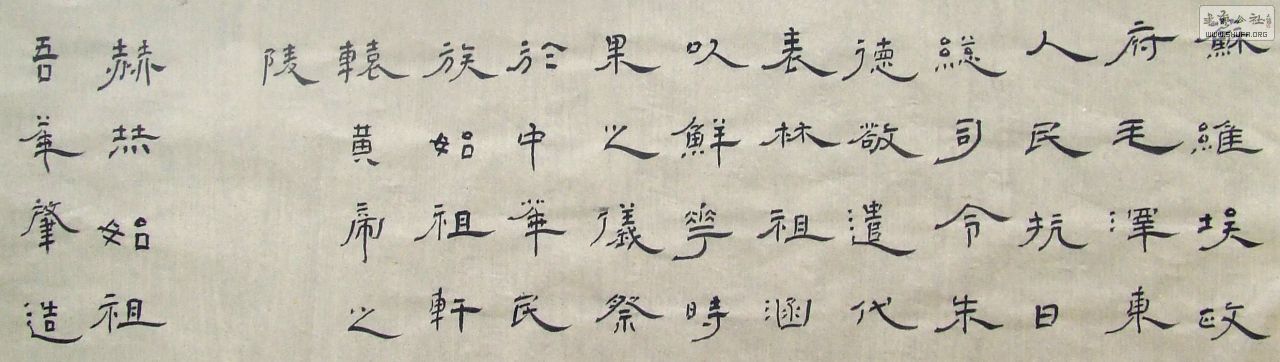 蘇維埃政
府毛澤東
人民抗日
總司令朱
德敬遣代
表林祖涵
以鮮花時
果之儀祭
於中華民
族始祖軒
轅黃帝之
陵
赫赫始祖
吾華肇造
WWW.SHUFA.ORG